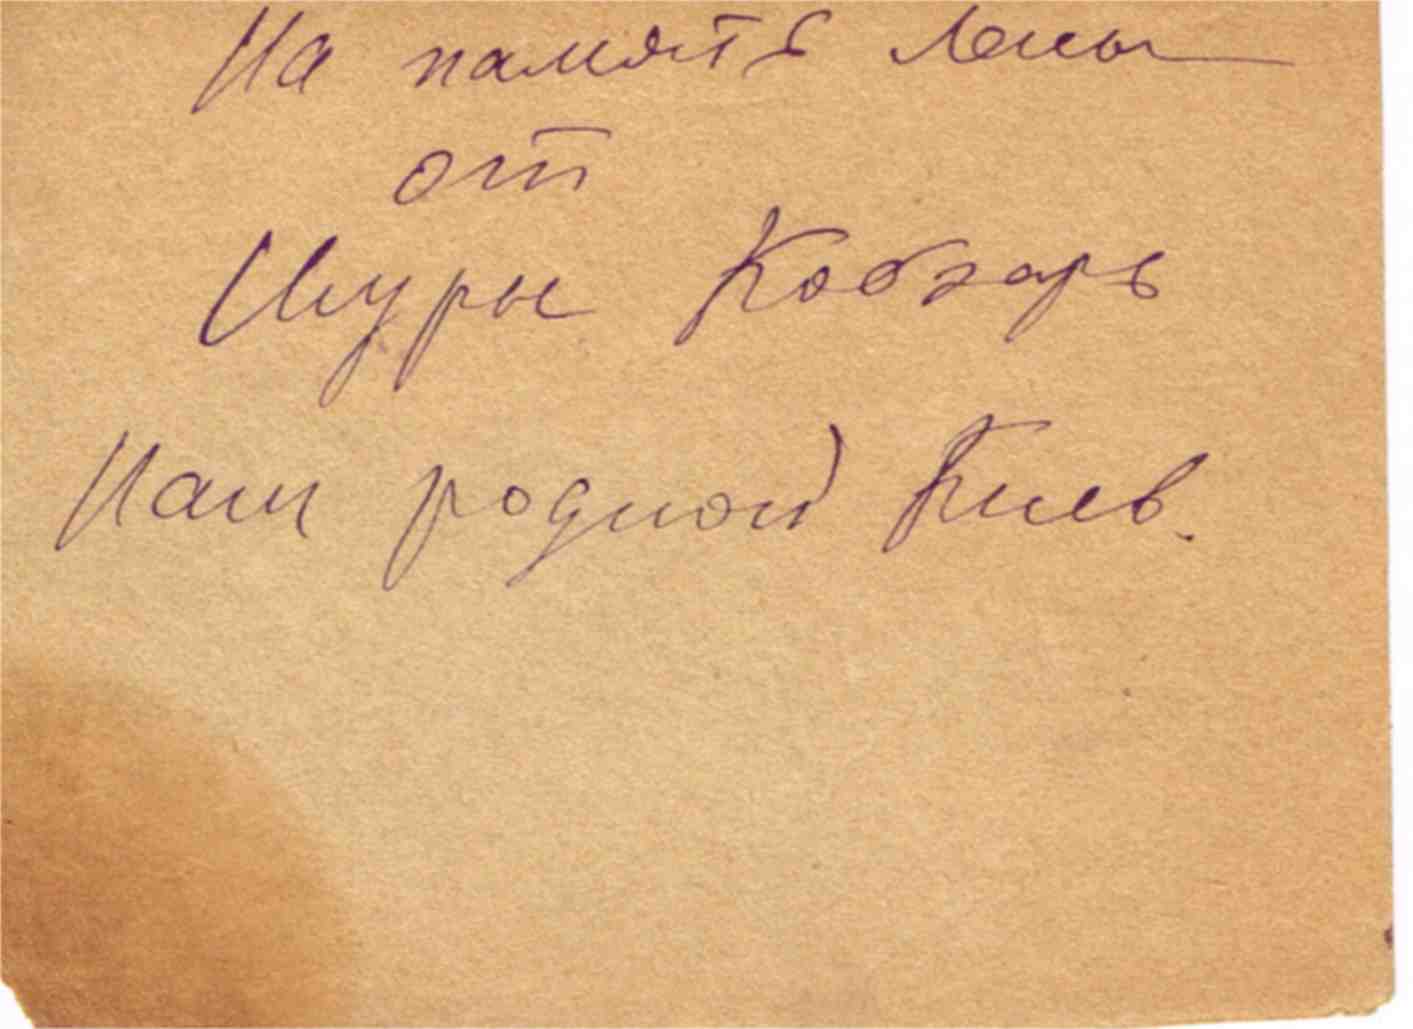 На память Лены
от
Шуры Кобзарь
Наш родной Киев.